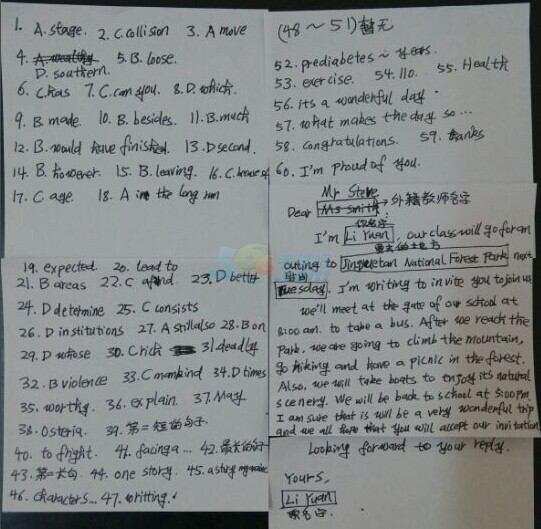 1. A. stage. 2. C. collision 3. A move
4. A. wealthy 5. B. loose.
D. southern.
6. C. has 7. C. can you. 8. D. which.
9. B. made. 10. B. besides. 11. B. much
12. B. would have finished. 13. D second.
14. B. however. 15. B. leaving. 16. C. because of
17. C age. 18. A in the long run
(48～51)暂无
52. prediabetes in years.
53. exercise. 54. 110. 55. Health
56. its a wonderful day.
57. what makes the day so...
58. congratulations. 59. thanks
60. I'm proud of you.
Mr Steve
Dear Ms Smith → 外籍教师名字
:
I'm Li Yuan, our class will go for an
outing to Jingyuetan National Forest Park next
时间
Tuesday. I'm writing to invite you to join us
we'll meet at the gate of our school at
8:00 am. to take a bus. After we reach the
Park, we are going to climb the mountain,
go hiking and have a picnic in the forest.
Also, we will take boats to enjoy its natural
scenery. We will be back to school at 5:00 PM.
I am sure that is will be a very wonderful trip
and we all hope that you will accept our invitation
Looking forward to your reply.
Yours,
Li Yuan
19. expected. 20. lead to
21. B areas 22. C and. 23. D better
24. D determine 25. C consists
26. D institutions 27. A still also 28. B on
29. D whose 30. C rich 31. deadly
32. B violence 33. C mankind 34. D times
35. worthy. 36. explain. 37. May
38. Osteria. 39. 第二短的句子.
40. to fright. 41. facing a... 42. 最长的句子
43. 第一大句. 44. one story. 45. a story
46. characters... 47. writting.